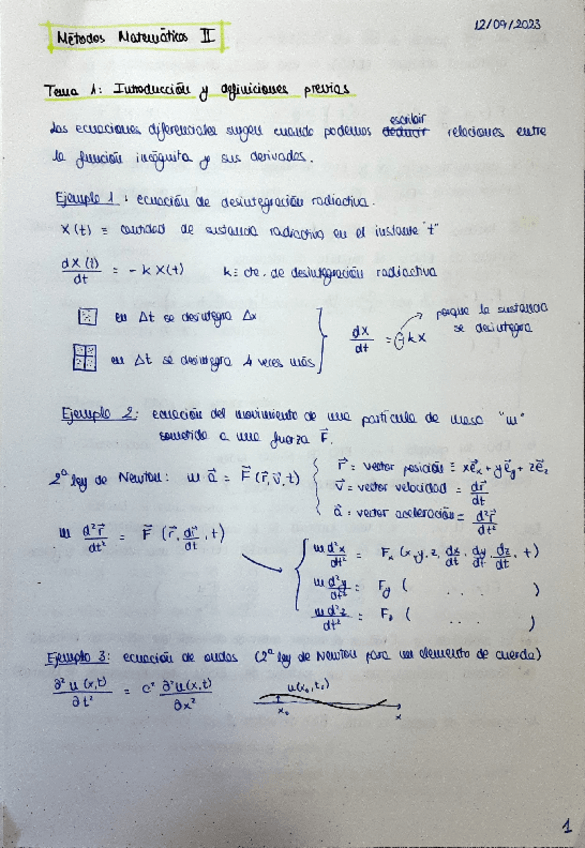 12/09/2023
Métodos Matemáticos II
Tema 1: Introducción y definiciones previas
Las ecuaciones diferenciales surgen cuando podemos escribir relaciones entre
la función incógnita y sus derivadas.
Ejemplo 1: ecuación de desintegración radiactiva.
X(t) ≡ cantidad de sustancia radiactiva en el instante "t"
dX(t)/dt = -k X(t)    k ≡ cte. de desintegración radiactiva
en Δt se desintegra Δx
en Δt se desintegra 4 veces más
dx/dt = -kx
porque la sustancia
se desintegra
Ejemplo 2: ecuación del movimiento de una partícula de masa "m"
sometida a una fuerza F⃗.
2ª ley de Newton: m a⃗ = F⃗(r⃗, v⃗, t)
r⃗ ≡ vector posición ≡ xe⃗x + ye⃗y + ze⃗z
v⃗ ≡ vector velocidad = dr⃗/dt
a⃗: vector aceleración = d²r⃗/dt²
m d²r⃗/dt² = F⃗(r⃗, dr⃗/dt, t)
m d²x/dt² = Fx (x, y, z, dx/dt, dy/dt, dz/dt, t)
m d²y/dt² = Fy ( ... )
m d²z/dt² = Fz ( ... )
Ejemplo 3: ecuación de ondas (2ª ley de Newton para un elemento de cuerda)
∂²u(x,t)/∂t² = c² ∂²u(x,t)/∂x²
u(x₀,t₀)
x₀
x
1